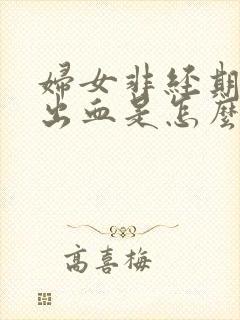 婦女非経期
出血是怎麼
高喜梅